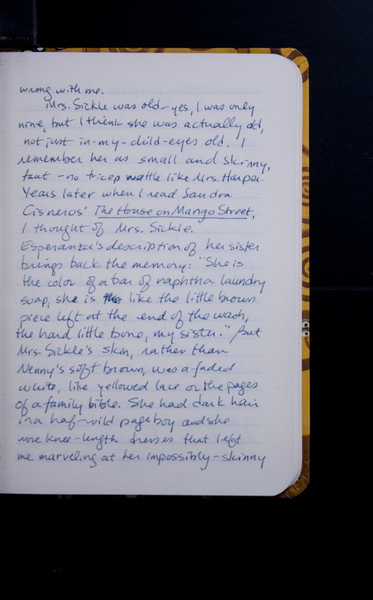 wrong with me.
Mrs. Sickle was old – yes, I was only
nine, but I think she was actually old,
not just in-my-child-eyes old. I
remember her as small and skinny,
taut – no tricep wattle like Mrs. Harper.
Years later when I read Sandra
Cisneros' The House on Mango Street,
I thought of Mrs. Sickle.
Esperanza's description of her sister
brings back the memory: "She is
the color of a bar of naphtha laundry
soap, she is like the little brown
piece left at the end of the wash,
the hard little bone, my sister." But
Mrs. Sickle's skin, rather than
Nenny's soft brown, was a faded
white, like yellowed lace or the pages
of a family bible. She had dark hair
in a half-wild pageboy and she
wore knee-length dresses that left
me marveling at her impossibly-skinny